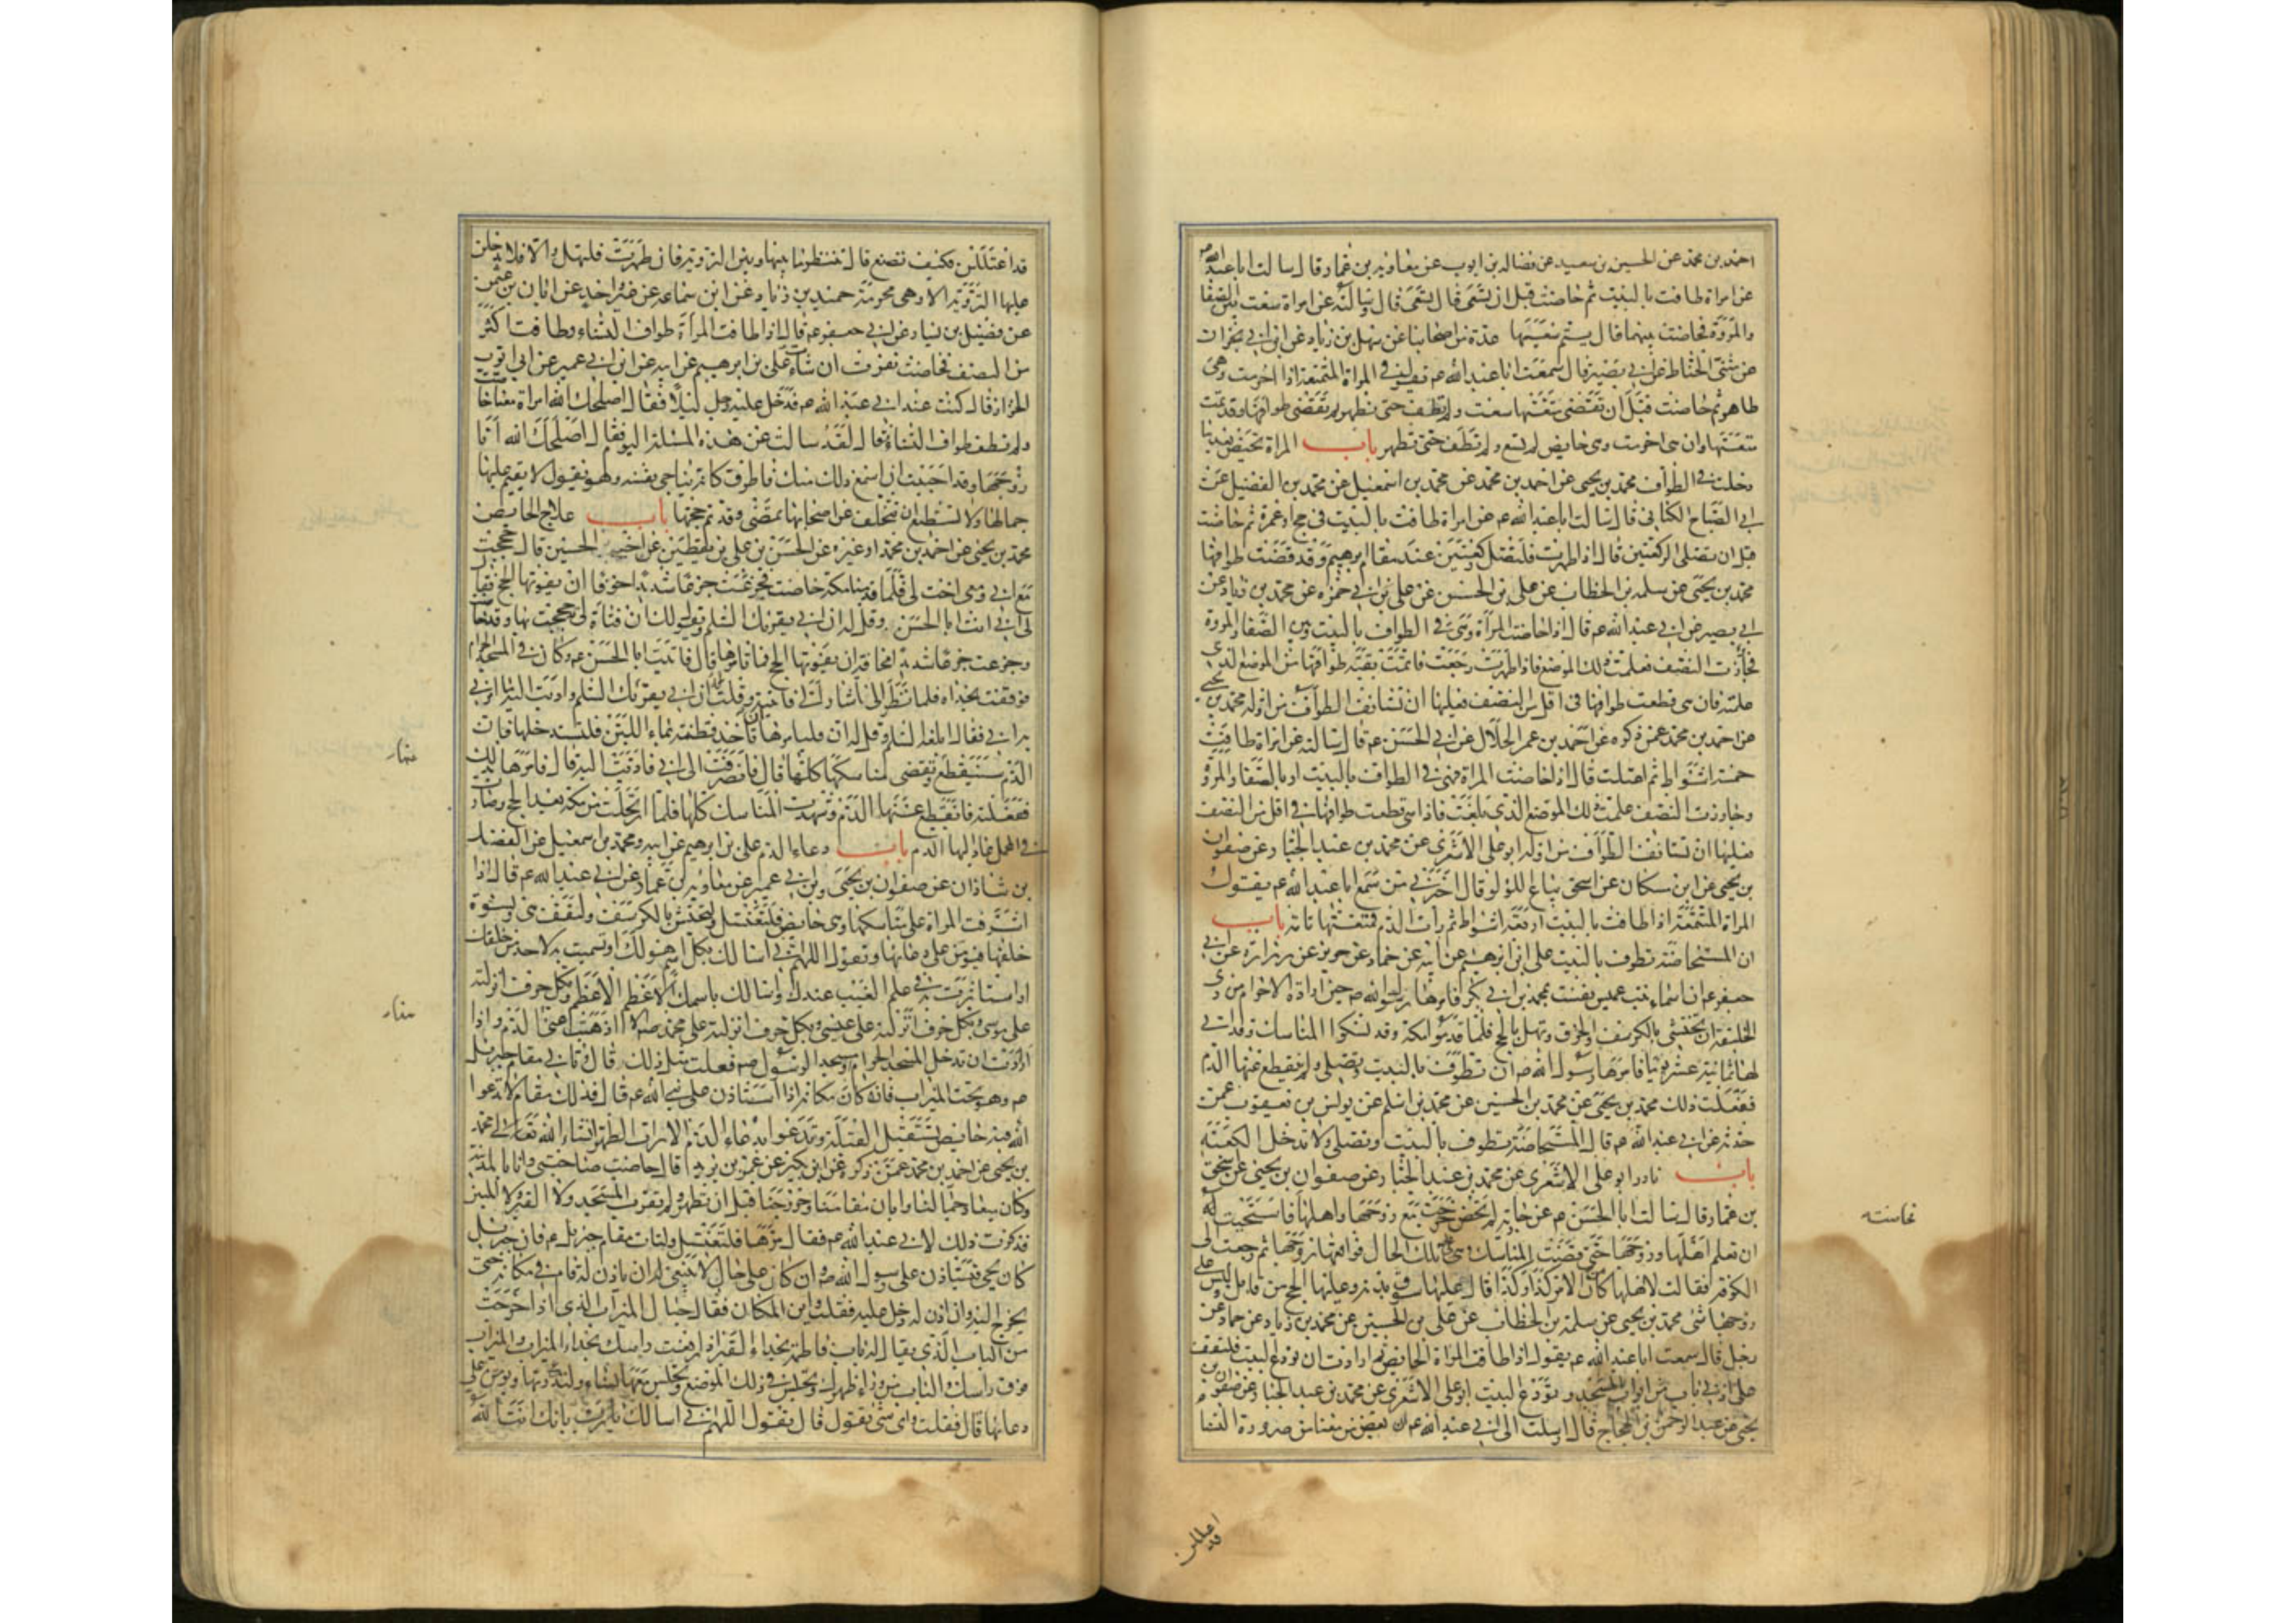 احمد بن محمد عن الحسين بن سعيد عن فضاله بن ايوب عن معاويه بن عمار قال سالت ابا عبد الله
عن امراة طافت بالبيت ثم حاضت قبل ان تسعى قال تسعى قال وسالته عن امراة سعت بين الصفا
والمروة فحاضت بينهما قال يستم سعيها عدة من اصحابنا عن سهل بن زياد عن ابن ابي نجران
عن مثنى الحناط عن ابي بصير قال سمعت ابا عبد الله عم يقول في المراة المتمتعة اذا احرمت وهى
طاهر ثم حاضت قبل ان تقضى متعتها سعت ولم تطف حتى تطهر ثم تقضى طوافها وقد تمت
متعتها وان هى احرمت وهى حايض لم تسع ولم تطف حتى تطهر باب المراة تحيض بعد ما
دخلت في الطواف محمد بن يحيى عن احمد بن محمد عن محمد بن اسمعيل عن محمد بن الفضيل عن
ابي الصباح الكناني قال سالت ابا عبد الله عم عن امراة طافت بالبيت في حج او عمرة ثم حاضت
قبل ان تصلى الركعتين قال اذا طهرت فلتصل ركعتين عند مقام ابرهيم وقد قضت طوافها
محمد بن يحيى عن سلمه بن الخطاب عن على بن الحسن عن على بن ابي حمزه عن محمد بن زياد عن
ابي بصير عن ابي عبد الله عم قال اذا حاضت المراة وهى في الطواف بالبيت وبين الصفا والمروة
فجاوزت النصف فعلمت ذلك الموضع فاذا طهرت رجعت فاتمت بقية طوافها من الموضع الذى
علمته فان هى قطعت طوافها في اقل من النصف فعليها ان تستانف الطواف من اوله محمد بن يحيى
عن احمد بن محمد عمن ذكره عن احمد بن عمر الحلال عن ابي الحسن عم قال سالته عن امراة طافت
خمسة اشواط ثم اعتلت قال اذا حاضت المراة وهى في الطواف بالبيت او بالصفا والمروة
وجاوزت النصف علمت ذلك الموضع الذى بلغت فاذا هى قطعت طوافها في اقل من النصف
فعليها ان تستانف الطواف من اوله ابو على الاشعرى عن محمد بن عبد الجبار عن صفوان
بن يحيى عن ابن مسكان عن اسحق بياع اللؤلؤ قال اخبرني من سمع ابا عبد الله عم يقول
المراة المتمتعة اذا طافت بالبيت اربعة اشواط ثم رات الدم فمتعتها تامة باب
ان المستحاضة تطوف بالبيت على بن ابرهيم عن ابيه عن حماد عن حريز عن زرارة عن ابي
جعفر عم ان اسماء بنت عميس نفست بمحمد بن ابي بكر فامرها رسول الله ص حين ارادة الاحرام من ذى
الحليفة ان تحتشى بالكرسف والخرق وتهل بالحج فلما قدموا مكة وقد نسكوا المناسك وقد اتى
لها ثمانية عشر يوما فامرها رسول الله ص ان تطوف بالبيت وتصلى ولم ينقطع عنها الدم
ففعلت ذلك محمد بن يحيى عن محمد بن الحسين عن محمد بن اسلم عن يونس بن يعقوب عمن
حدثه عن ابي عبد الله عم قال المستحاضة تطوف بالبيت وتصلى ولا تدخل الكعبة
باب نادر ابو على الاشعرى عن محمد بن عبد الجبار عن صفوان بن يحيى عن اسحق
بن عمار قال سالت ابا الحسن عم عن جارية لم تحض خرجت مع زوجها واهلها فاستحيت
ان تعلم اهلها وزوجها حتى قضت المناسك وهى على تلك الحال فواقعها زوجها ثم رجعت الى
الكوفه فقالت لاهلها كان الامر كذا وكذا قال عليها سوق بدنة وعليها الحج من قابل وليس على
زوجها شى محمد بن يحيى عن سلمة بن الخطاب عن على بن الحسين عن محمد بن زياد عن حماد عن
رجل قال سمعت ابا عبد الله عم يقول اذا طافت المراة الحايض ثم ارادت ان تودع البيت فلتقف
على ادنى باب من ابواب المسجد وتودع البيت ابو على الاشعرى عن محمد بن عبد الجبار عن صفوان بن
يحيى عن عبد الرحمن بن الحجاج قال ارسلت الى ابي عبد الله عم ان بعض من معنا من صرورة النسا
قد اعتللن
قد اعتللن فكيف تصنع قال تنتظر ما بينها وبين التروية فان طهرت فلتهل والا فلا يدخلن
عليها التروية الا وهى محرمة حميد بن زياد عن ابن سماعه عن غير واحد عن ابان بن عثمن
عن فضيل بن يسار عن ابي جعفر عم قال اذا طافت المراة طواف النساء وطافت اكثر
من النصف فحاضت نفرت ان شاءت على بن ابرهيم عن ابيه عن ابن ابي عمير عن ابي ايوب
الخزاز قال كنت عند ابي عبد الله عم فدخل عليه رجل ليلا فقال اصلحك الله امراة معنا حاضت
ولم تطف طواف النساء قال لقد سالت عن هذه المسئلة اليوم فقال اصلحك الله انا
زوجها وقد احببت ان اسمع ذلك منك فاطرق كانه يناجى نفسه وهو يقول لا يقيم عليها
جمالها ولا تستطيع ان تتخلف عن اصحابها تمضى وقد تم حجها باب علاج الحايض
محمد بن يحيى عن احمد بن محمد او غيره عن الحسن بن على بن يقطين عن اخيه الحسين قال حججت
مع ابي ومعى اخت لى فلما قدمنا مكه حاضت فجزعت جزعا شديدا خوفا ان يفوتها الحج فقال
لى ابي ائت ابا الحسن وقل له ان ابي يقرئك السلم ويقول لك ان فتاة لى حججت بها وقد حاضت
وجزعت جزعا شديدا مخافة ان يفوتها الحج فما تامرها قال فاتيت ابا الحسن عم وكان في المسجد الحرام
فوقفت بحذاه فلما نظر الى اشار الى فاتيته وقلت له ان ابي يقرئك السلم واديت اليه ما امرني
به ابي فقال ابلغه السلم وقل له ان فليامرها ان تاخذ قطنة بماء اللبن فلتستدخلها فان
الدم سينقطع وتقضى مناسكها كلها قال فانصرفت الى ابي فاديت اليه قال فامرها بذلك
ففعلته فانقطع عنها الدم وشهدت المناسك كلها فلما ارتحلت من مكه بعد الحج وصارت
في المحمل عاد اليها الدم باب دعاء الدم على بن ابرهيم عن ابيه ومحمد بن اسمعيل عن الفضل
بن شاذان عن صفوان بن يحيى وابن ابي عمير عن معاويه بن عمار عن ابي عبد الله عم قال اذا
اشرفت المراة على مناسكها وهى حايض فلتغتسل ولتحتش بالكرسف ولتقف هى ونسوة
خلفها فيؤمن على دعائها وتقول اللهم اني اسالك بكل اسم هو لك او تسميت به لاحد من خلقك
او استاثرت به في علم الغيب عندك واسالك باسمك الاعظم الاعظم وبكل حرف انزلته
على موسى وبكل حرف انزلته على عيسى وبكل حرف انزلته على محمد ص الا اذهبت عنى الدم واذا
اردت ان تدخل المسجد الحرام او مسجد الرسول ص فعلت مثل ذلك قال وتاتي مقام جبرئيل
عم وهو تحت الميزاب فانه كان مكانه اذا استاذن على نبي الله عم قال فذلك مقام لا تدعوا
الله فيه حايض تستقبل القبلة وتدعوا بدعاء الدم الا رات الطهر انشاء الله تعالى محمد
بن يحيى عن احمد بن محمد عمن ذكره عن ابن بكير عن عمر بن يزيد قال حاضت صاحبتي وانا بالمدينة
وكان ميعاد جمالنا وابان مقامنا وخروجنا قبل ان تطهر ولم تقرب المسجد ولا القبر ولا المنبر
فذكرت ذلك لابي عبد الله عم فقال مرها فلتغتسل ولتات مقام جبرئيل عم فان جبرئيل
كان يجئ فيستاذن على رسول الله ص وان كان على حال لا ينبغى له ان ياذن له قام في مكانه حتى
يخرج اليه وان اذن له دخل عليه فقلت واين المكان فقال حيال الميزاب الذى اذا خرجت
من الباب الذى يقال له باب فاطمه بحذاء القبر اذا رفعت راسك بحذاء الميزاب والميزاب
فوق راسك والباب من وراء ظهرك وتجلس في ذلك الموضع وتجلس معها نساء ولتدع ربها ويؤمن على
دعائها قال فقلت واى شى تقول قال تقول اللهم اني اسالك بانك انت الله